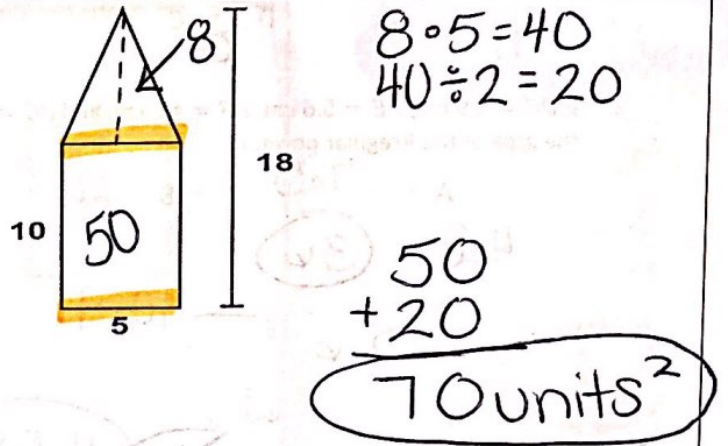 8
18
10
50
5
8•5=40
40÷2=20
50
+20
70units²